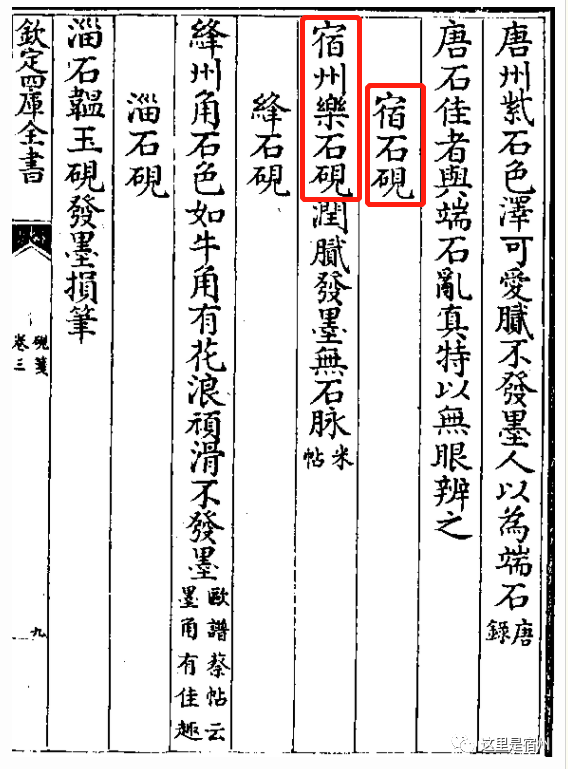 唐州紫石色澤可愛膩不發墨人以為端石唐錄
唐石佳者與端石亂真特以無眼辨之
宿石硯
宿州樂石硯潤膩發墨無石脉米帖
絳石硯
絳州角石色如牛角有花浪頑滑不發墨歐譜蔡帖云墨角有佳趣
淄石硯
淄石韞玉硯發墨損筆
欽定四庫全書
硯箋
卷三
九
这里是宿州